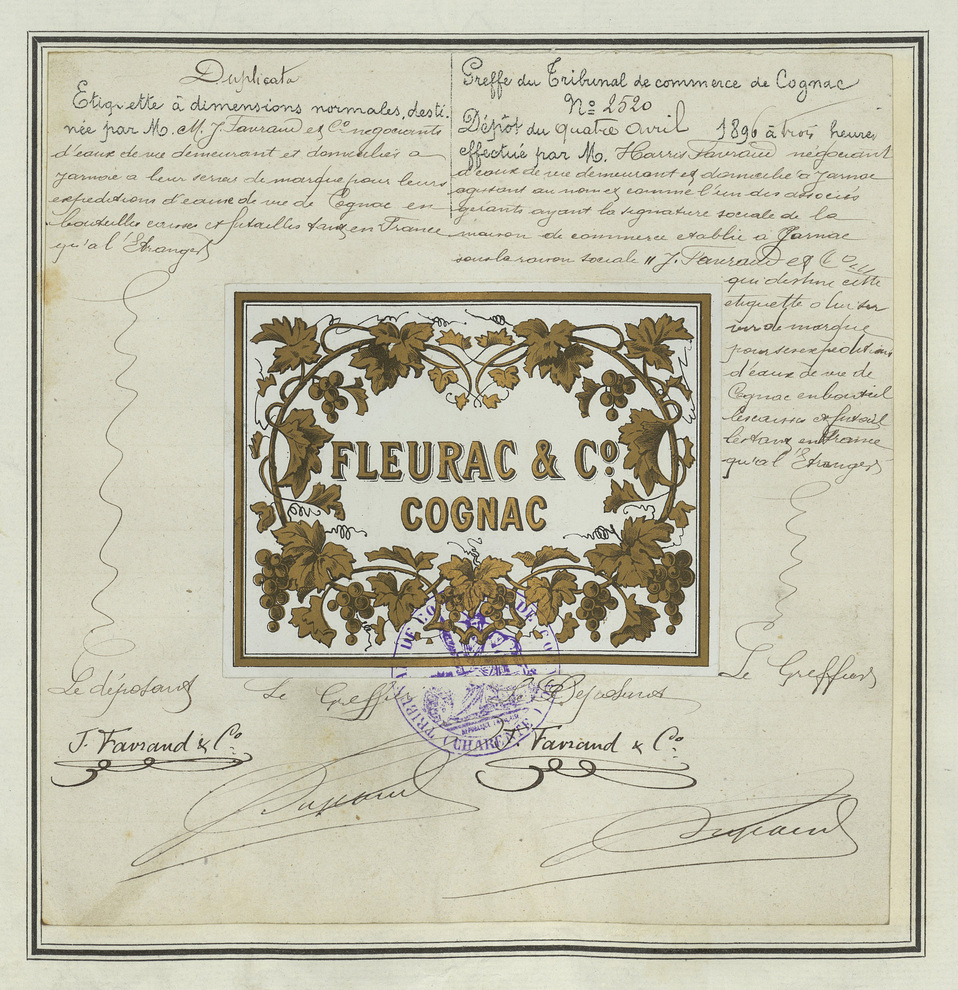 Duplicata
Etiquette à dimensions normales, desti-
née par M. M. J. Favraud et Co négociants
d'eaux de vie demeurant et domiciliés a
Jarnac a leur servir de marque pour leurs
expeditions d'eaux de vie de Cognac en
bouteilles caisses et futailles tant en France
qu'a l'Etranger
Greffe du Tribunal de commerce de Cognac
No 2520
Dépôt du quatre avril 1896 à trois heures
effectué par M. Harris Favraud négociant
d'eaux de vie demeurant et domicilié à Jarnac
agissant au nom et comme l'un des associés
gérants ayant la signature sociale de la
maison de commerce etablie a Jarnac
sous la raison sociale "J. Favraud et Co"
qui destine cette
etiquette a lui ser
vir de marque
pour ses expeditions
d'eaux de vie de
Cognac en bouteil
les caisses et futail
les tant en France
qu'a l'Etranger
FLEURAC & Co
COGNAC
Le déposant
Le Greffier
Le Déposant
Le Greffier
J. Favraud & Co
J. Favraud & Co
CHARENTE